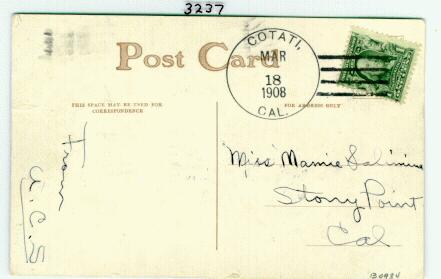 3237
Post Card
COTATI,
MAR
18
1908
CAL.
THIS SPACE MAY BE USED FOR
CORRESPONDENCE
FOR ADDRESS ONLY
From
Miss Mamie
Stony Point
Cal
B0934